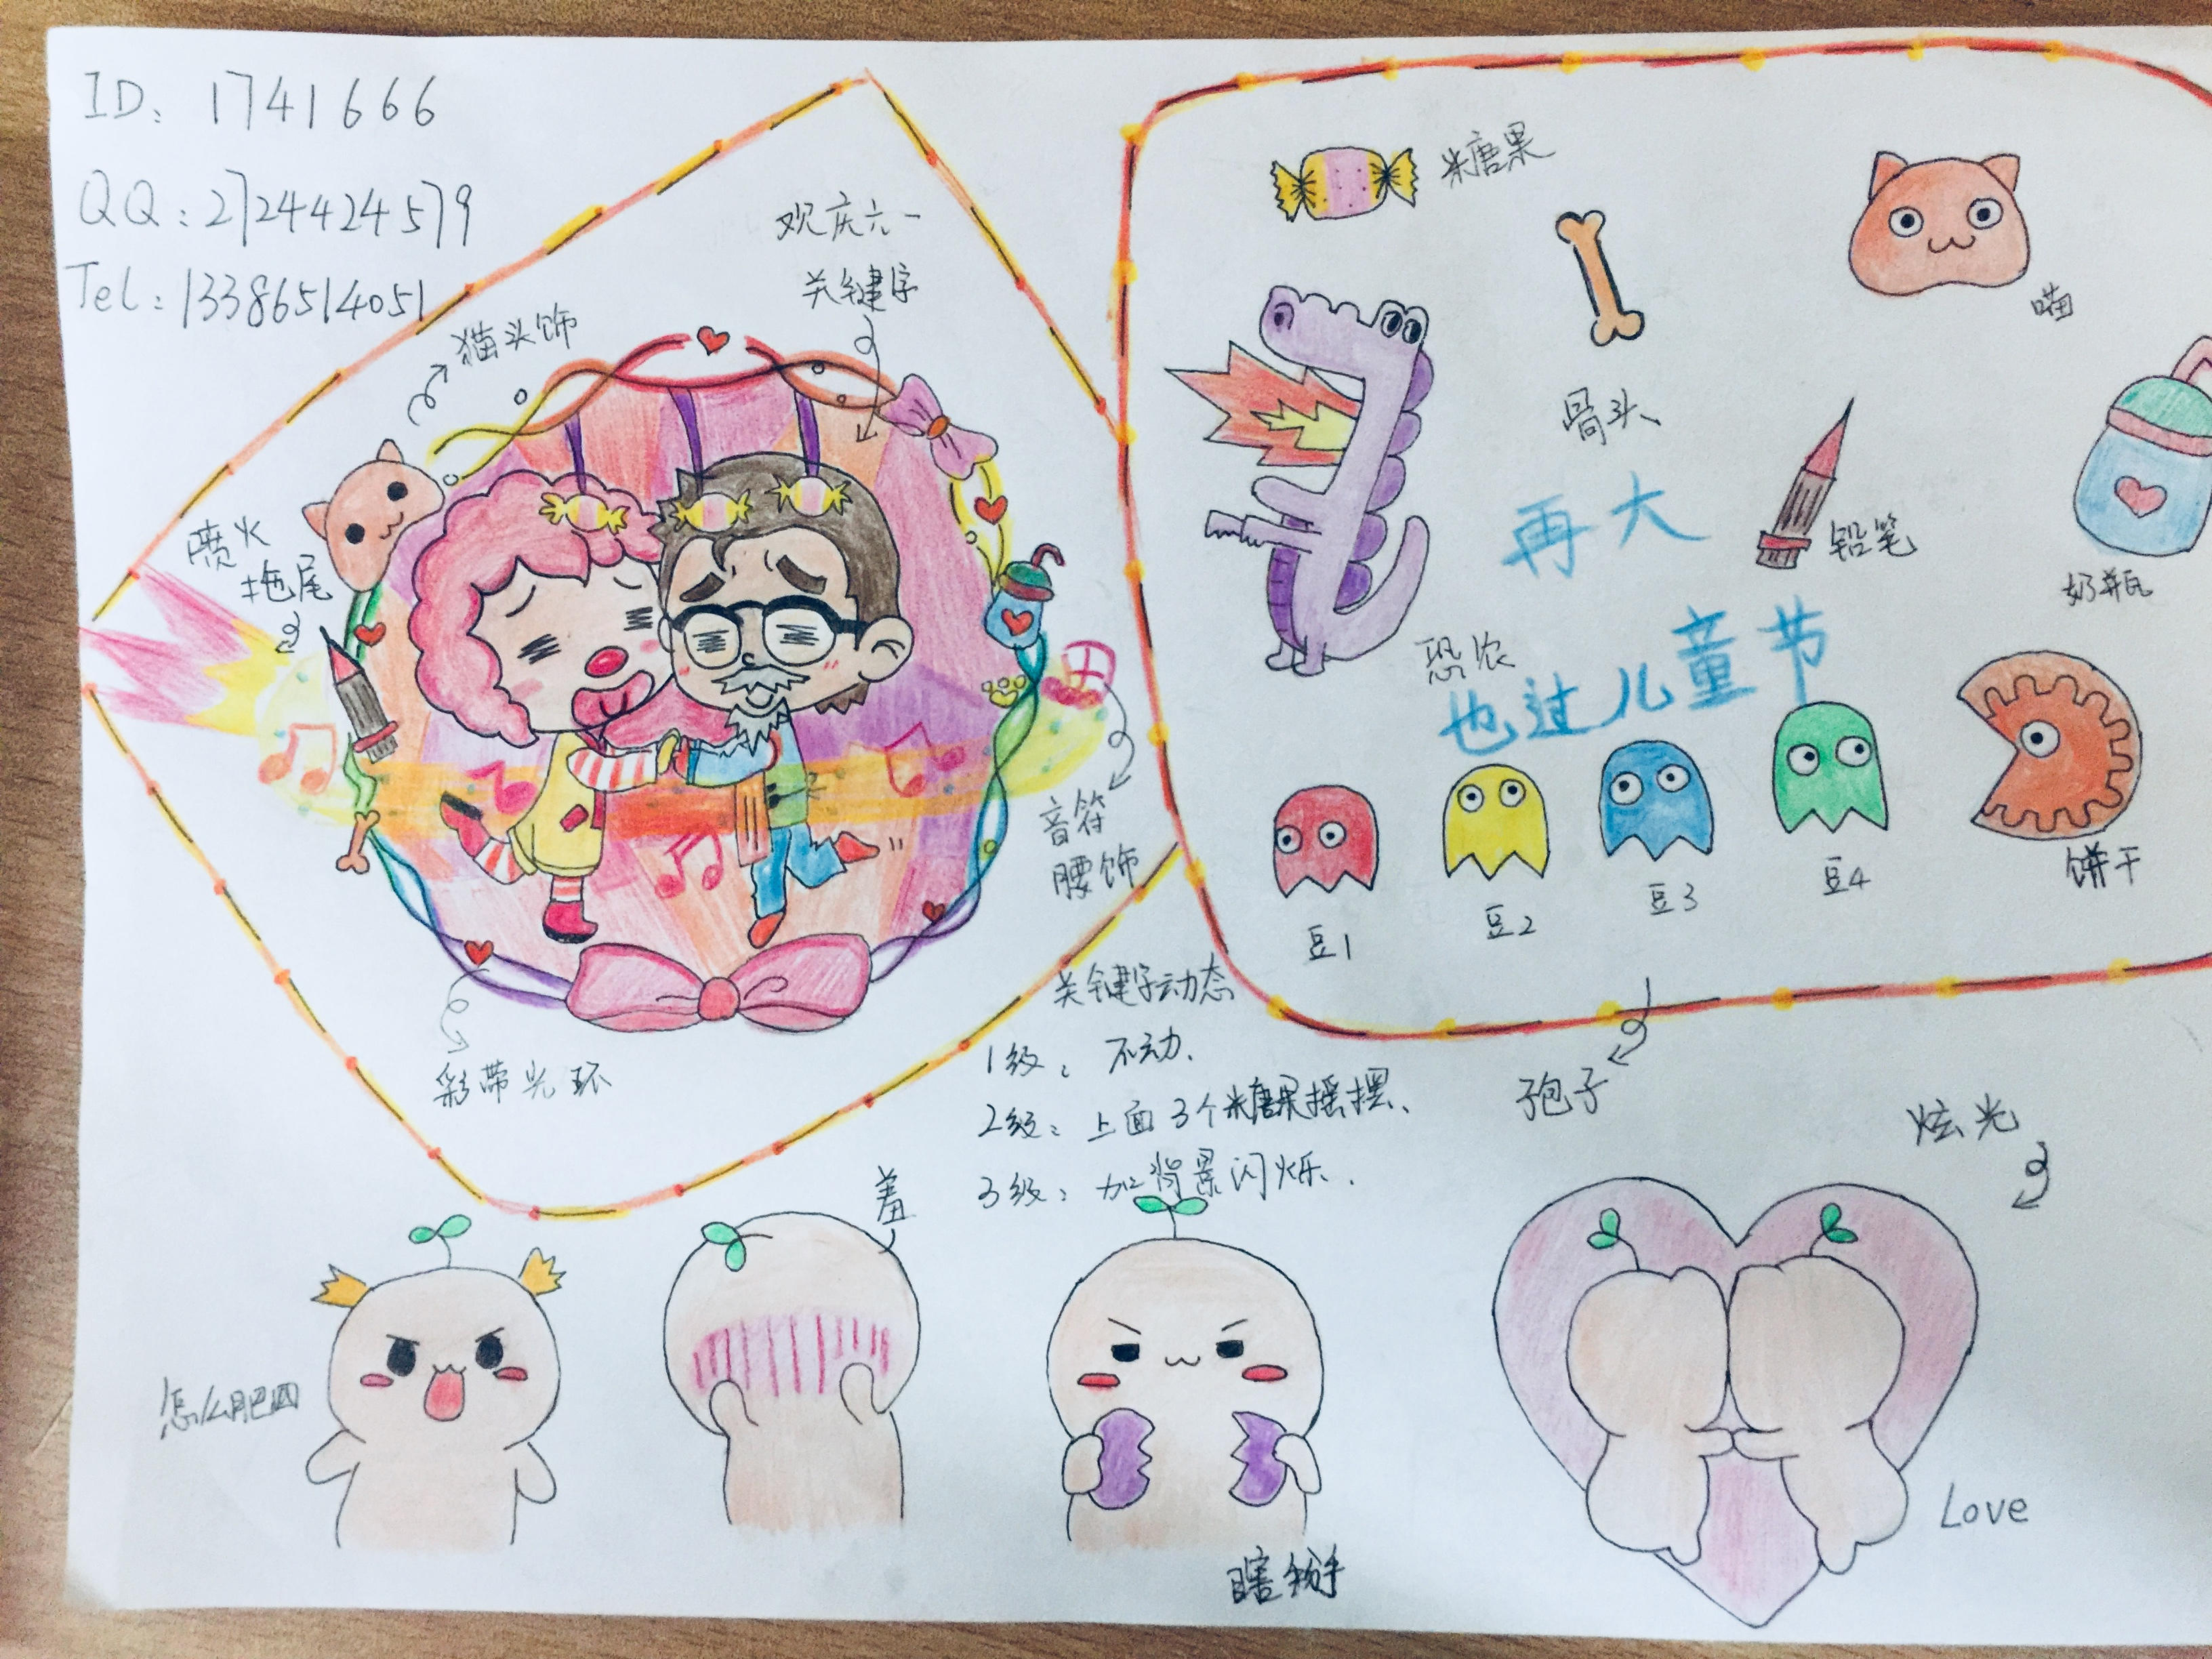 ID: 1741666
QQ:2724424579
Tel:13386514051
猫头饰
欢庆六一
关键字
喷火
拖尾
音符
腰饰
彩带光环
关键字动态
1级：不动、
2级：上面3个糖果摇摆、
3级：加背景闪烁.
糖果
骨头
喵
铅笔
奶瓶
恐浓
再大
也过儿童节
豆1
豆2
豆3
豆4
饼干
孢子
炫光
怎么肥四
羞
瞎掰
Love